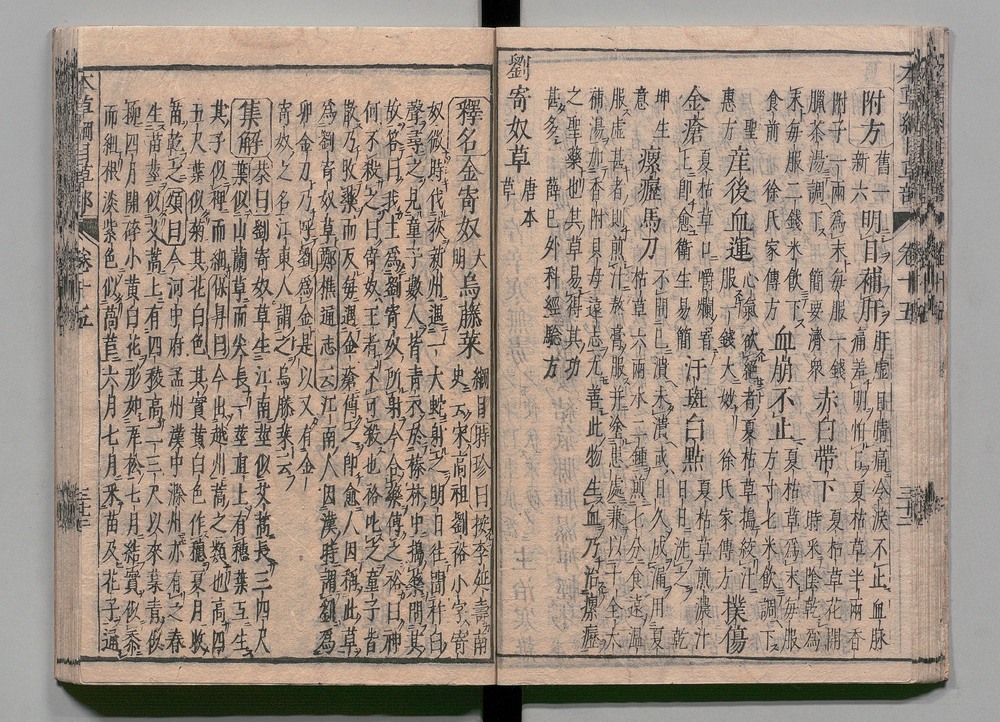 附方舊一新六明目補肝肝虛目睛痛冷淚不止血脈
痛羞明怕日夏枯草半兩香
附子一兩為末每服一錢
臘茶湯調下簡要濟衆赤白帶下夏枯草花開時采陰乾為
末每服二錢米飲下
食前徐氏家傳方血崩不止夏枯草為末每服方寸匕米飲調下
聖惠方產後血運心氣欲絕者夏枯草搗絞汁服一盞大妙徐氏家傳方撲傷
金瘡夏枯草口嚼爛罯上即愈衛生易簡汗斑白點夏枯草煎濃汁日日洗之乾
坤生意瘰癧馬刀不問已潰未潰或日久成漏用夏枯草六兩水二鍾煎七分食遠溫
服虛甚者則煎汁熬膏服并塗患處兼以十全大
補湯加香附貝母遠志尤善此物生血乃治瘰癧
之聖藥也其草易得其功
甚多薛己外科經驗方
劉寄奴草唐本草
釋名金寄奴大明烏藤菜綱目時珍曰按李延壽南史云宋高祖劉裕小字寄
奴微時伐荻新州遇一大蛇射之明日往聞杵臼
聲尋之見童子數人皆青衣於榛林中搗藥問其
故答曰我主為劉寄奴所射今合藥傅之裕曰神
何不殺之曰寄奴王者不可殺也裕叱之童子皆
散乃收藥而反每遇金瘡傅之即愈人因稱此草
為劉寄奴草鄭樵通志云江南人因漢時謂劉為
卯金刀乃呼劉為金是以又有金
寄奴之名江東人謂之烏藤菜云
集解恭曰劉寄奴草生江南莖似艾蒿長三四尺
葉似山蘭草而尖長一莖直上有穗葉互生
其子似稗而細保昇曰今出越州蒿之類也高四
五尺葉似菊其花白色其實黃白色作穗夏月收
苗乾之頌曰今河中府孟州漢中滁州亦有之春
生苗莖似艾蒿上有四稜高二三尺以來葉青似
柳四月開碎小黃白花形如瓦松七月結實似黍
而細根淡紫色似萵苣六月七月采苗及花子通